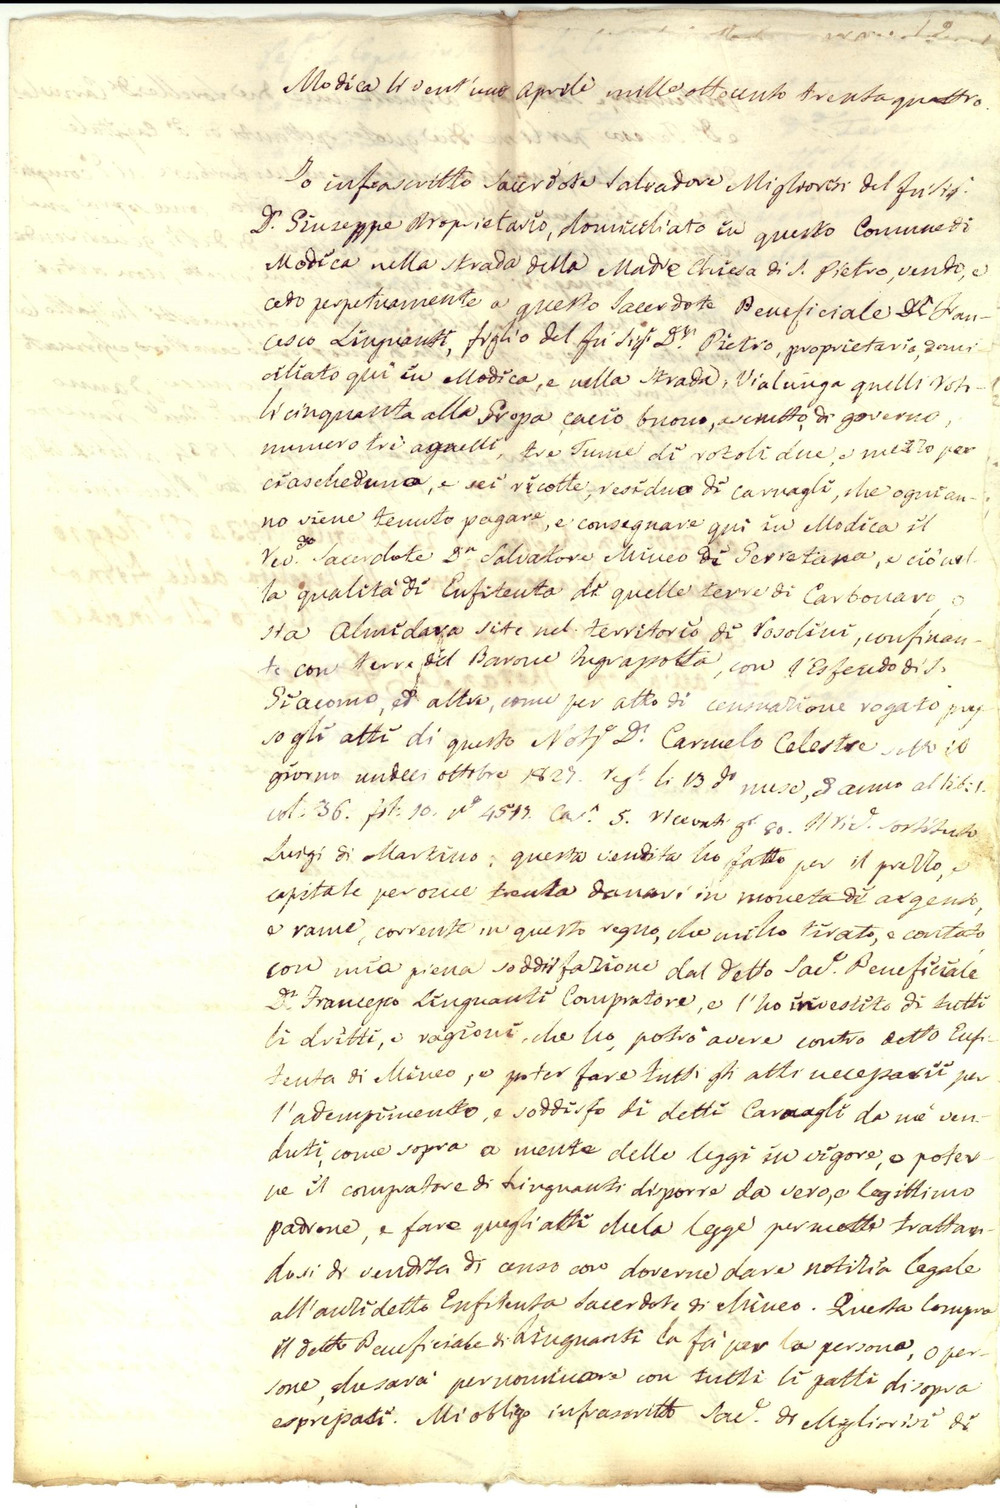 Modica li vent'uno Aprile mille ottocento trentaquattro.
Io infrascritto Sacerdote Salvadore Migliorisi del fu Sig.r
D.r Giuseppe Proprietario, domiciliato in questo Comune di
Modica nella strada della Madre Chiesa di S. Pietro, vendo, e
cedo perpetuamente a questo Sacerdote Beneficiale D.n Fran-
cesco Linguanti, figlio del fu Sig.r D.n Pietro, proprietario, domi
ciliato qui in Modica, e nella strada, Vialunga quelli roto-
li cinquanta alla Grossa cacio buono, asciutto, di governo,
numero tre agnelli, tre Tume di rotoli due, e mezzo per
ciascheduna, e sei ricotte, residuo di carnagli, che ogni an-
no viene tenuto pagare, e consegnare qui in Modica il
Rev.do Sacerdote D.n Salvatore Mineo di Gerratana, e ciò nel-
la qualità di Enfiteuta di quelle terre di Carbonaro, o
sia Almidara site nel territorio di Rosolini, confinan-
te con terre del Barone Ingrassotta, con l'Exfeudo di S.
Giacomo, ed altre, come per atto di censuazione rogato pres
so gli atti di questo Not.r D.n Carmelo Celestre sotto il
giorno undeci ottobre 1827. Reg.to li 13 d.o mese, ed anno al lib. 1.
vol. 36. fol. 10. n.o 4517. Cas.a 5. Ricevuti g.a 80. Il Ric.e sostituto
Luigi di Martino; questa vendita ho fatto per il prezzo, e
capitale per onze trenta danari in moneta di argento,
e rame, corrente in questo regno, che mi ho tirato, e contato
con mia piena soddisfazione dal detto Sac.e Beneficiale
D.n Francesco Linguanti Compratore, e l'ho investito di tutti
li dritti, e ragioni, che ho, potrò avere contro detto Enfi-
teuta di Mineo, e poter fare tutti gli atti necessarii per
l'adempimento, e soddisfo di detti Carnagli da me ven-
duti, come sopra a mente delle leggi in vigore, e poter-
ne il compratore di Linguanti disporre da vero, e legittimo
padrone, e fare quegli atti che la legge permette trattan-
dosi di vendita di censo con doverne dare notizia legale
all'anzidetto Enfiteuta Sacerdote di Mineo. Questa Compra
il detto Beneficiale di Linguanti la fà per la persona, o per-
sone, che sarà per nominare con tutti li patti di sopra
espressati. Mi obligo infrascritto Sac.e di Migliorisi di